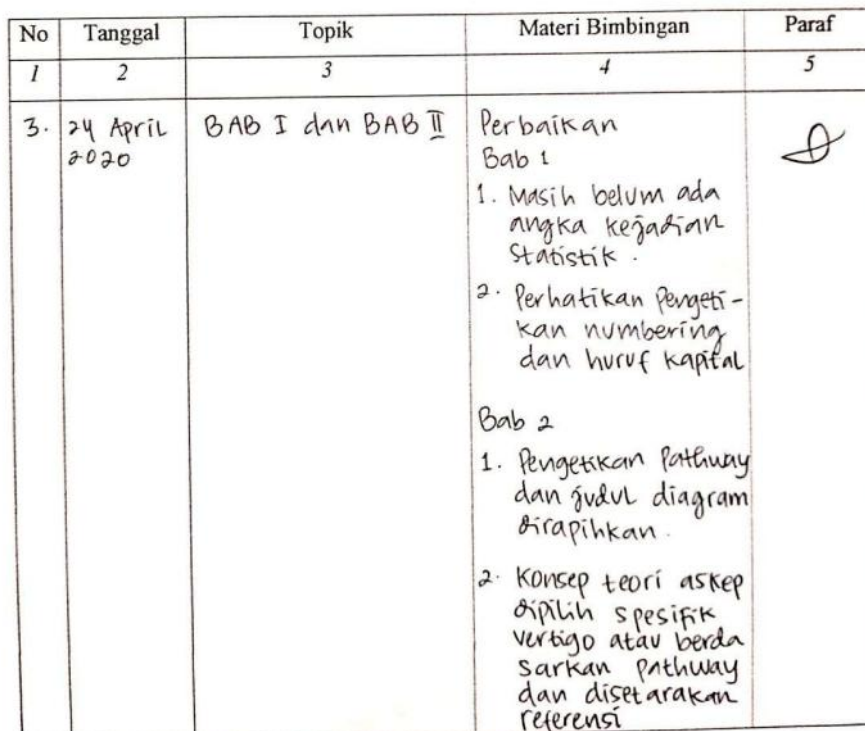 No Tanggal Topik Materi Bimbingan Paraf
1 2 3 4 5
3. 24 April BAB I dan BAB II Perbaikan
2020 Bab 1
1. Masih belum ada
angka kejadian
Statistik.
2. Perhatikan Pengeti-
kan numbering
dan huruf kapital
Bab 2
1. Pengetikan Pathway
dan judul diagram
dirapihkan.
2. Konsep teori askep
dipilih spesifik
vertigo atau berda
sarkan pathway
dan disetarakan
referensi